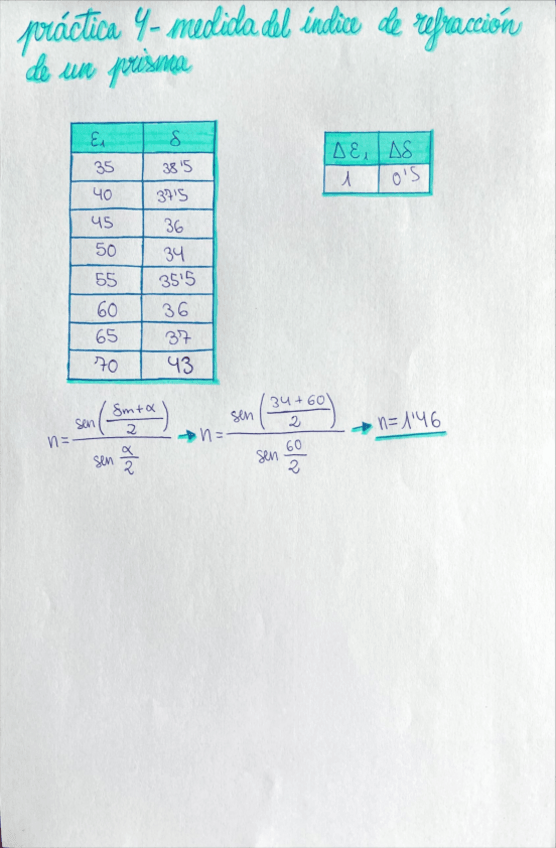 práctica 4 - medida del índice de refracción
de un prisma
ε₁ δ
35 38'5
40 37'5
45 36
50 34
55 35'5
60 36
65 37
70 43
Δε₁ Δδ
1 0'5
n = sen((δm+α)/2) / sen(α/2) → n = sen((34+60)/2) / sen(60/2) → n=1'46